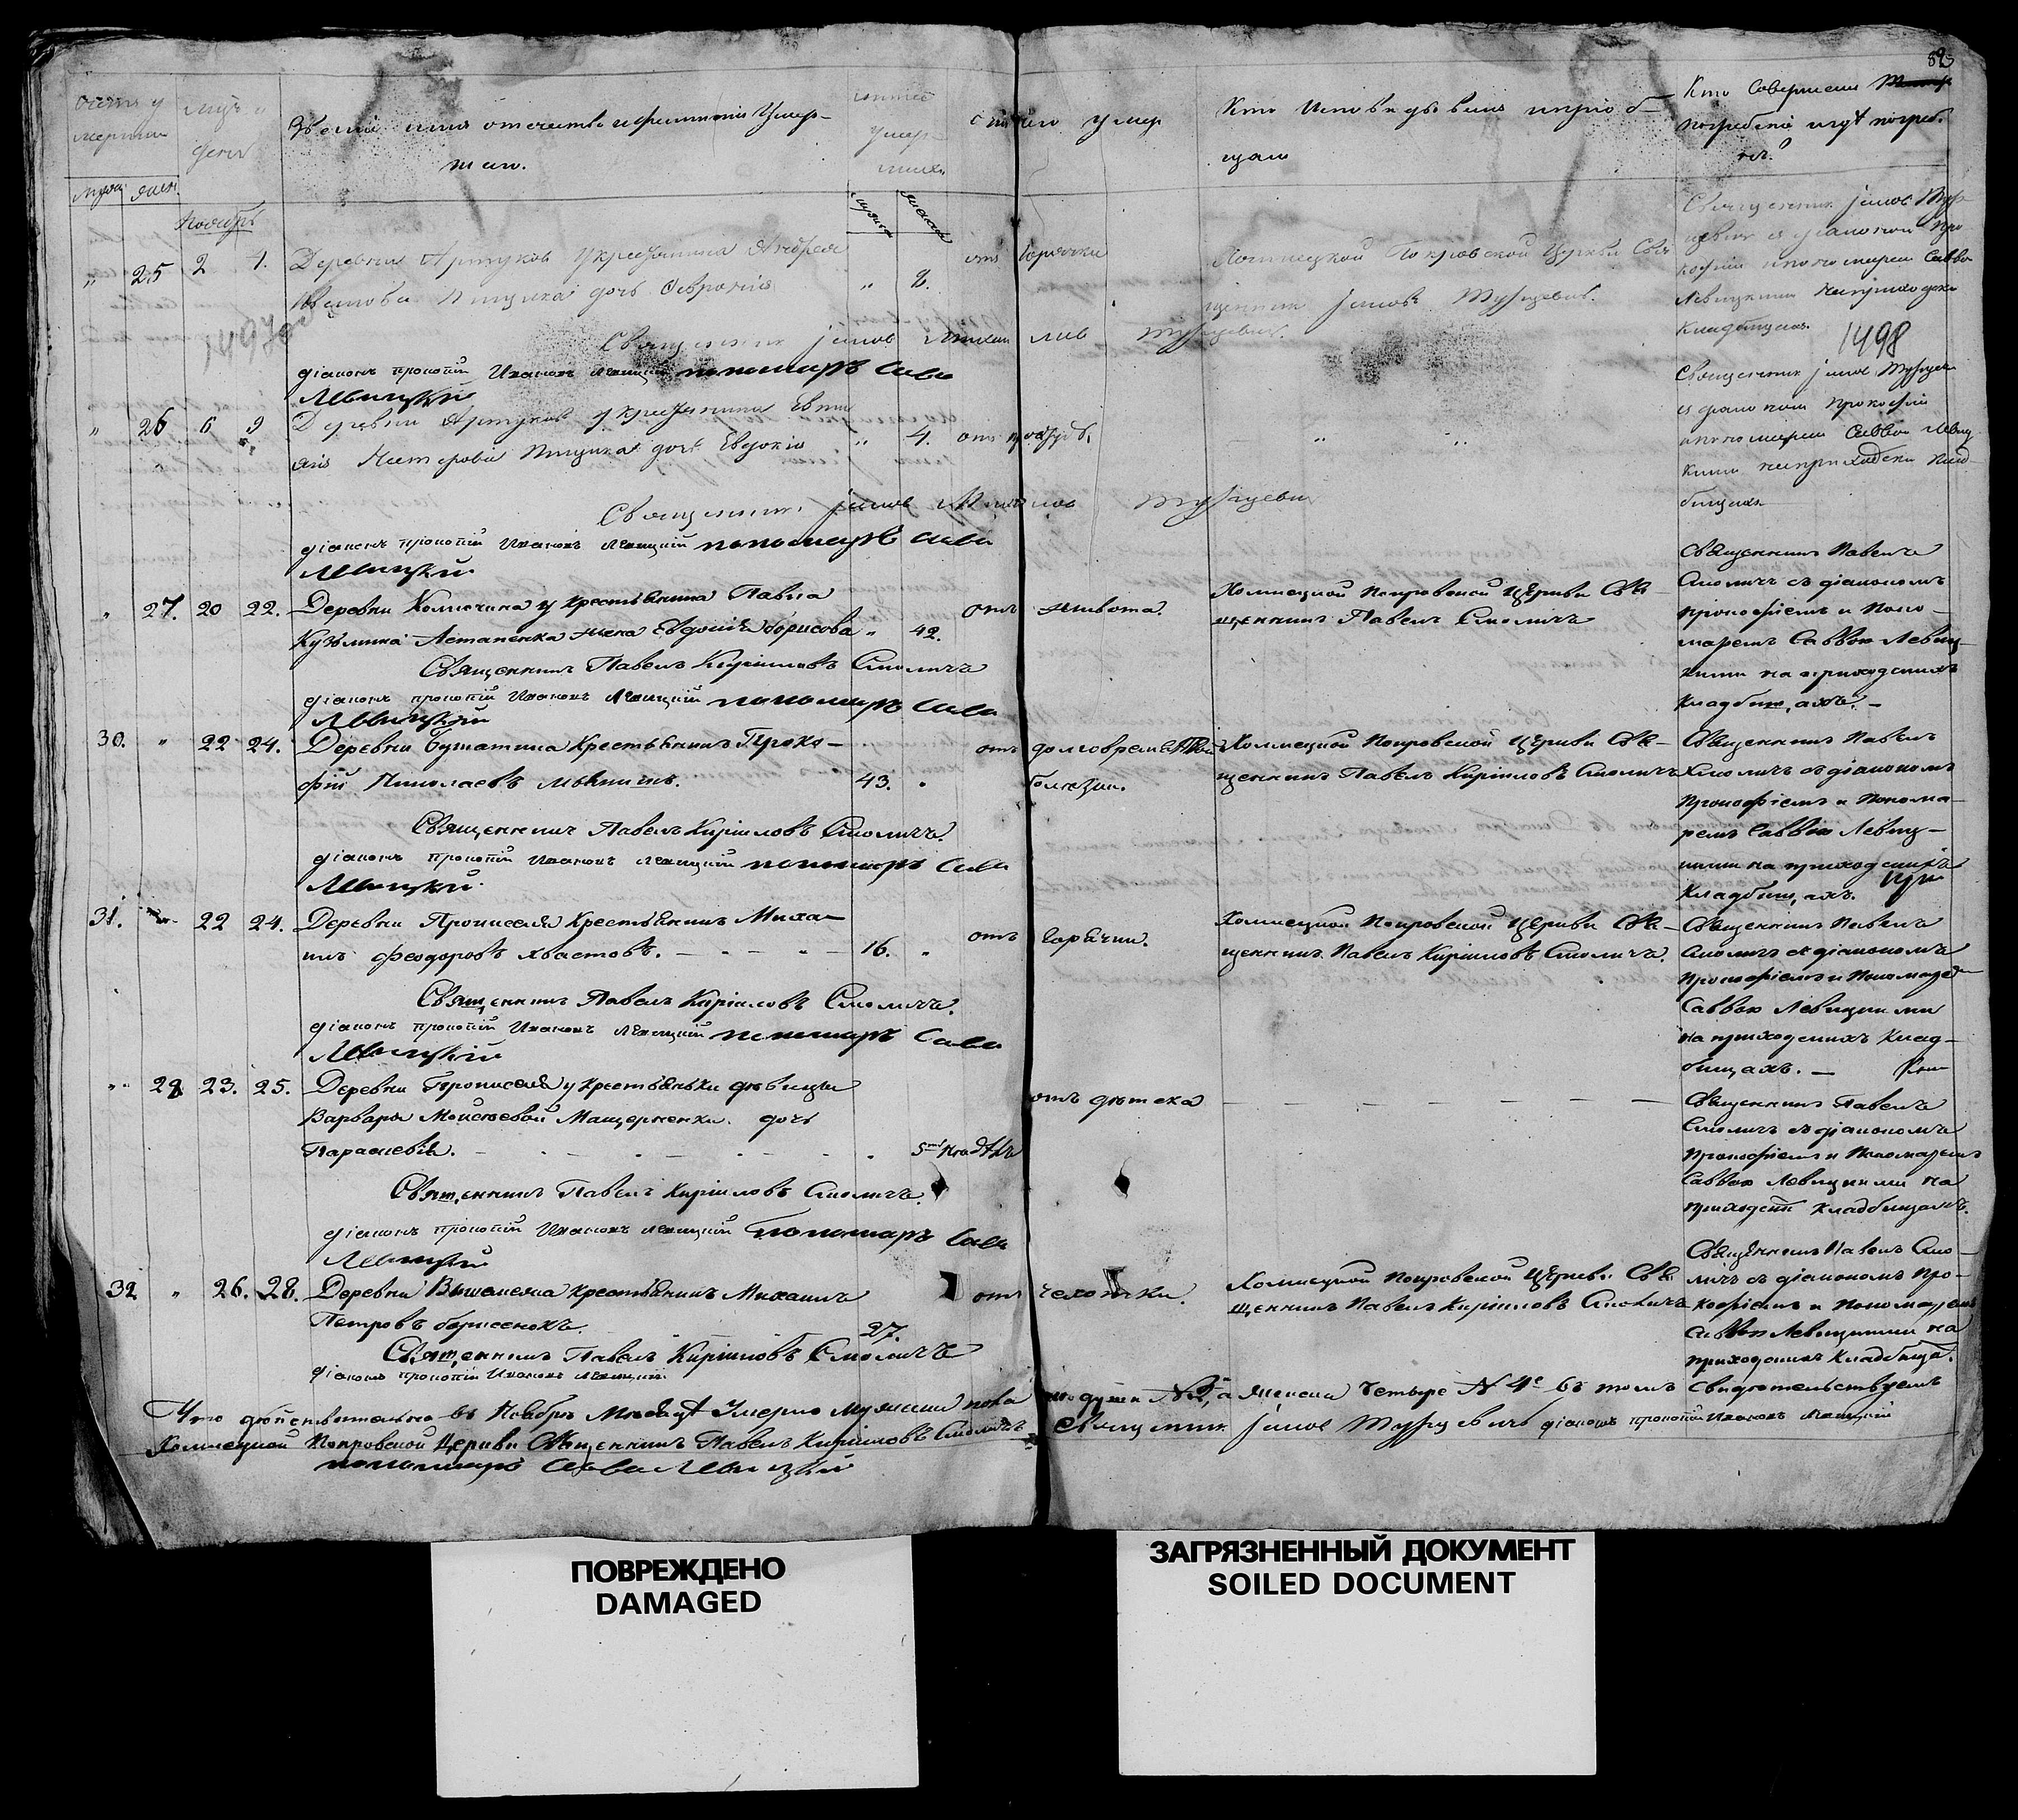 83
Счетъ у
мершихъ
Мца и
день
Званіе имя отечество и фамилія Умер-
шаго.
лета
умер-
шаго
отъ чего умеръ
Кто Исповѣдывалъ и пріоб-
щалъ
Кто Совершалъ
погребеніе и гдѣ погреб.
Ноябрь
" 25 2 4. Деревни Артуков у крестьянина Андрея
Иванова Птицика дочь Феврония " 2.
отъ Горячки
Холмецкой Покровской Церкви Свя
щенник
Священник
с діаконом Про
кофіем и пономарем Савво
Левицкими на приходском
Кладбищах.
1497
1498
Священник
діаконъ прокопій Ивановъ Левицкій пономаръ Сава
Левицкій
" 26 6 9 Деревни Артуков у крестьянина Евти
хія Нестерова Птицика дочь Евдокія " 4. отъ
" "
Священник
с діаконом Прокофіем
и пономарем Саввою Левиц
кими на приходском Клад-
бищах
Священник
діаконъ прокопій Ивановъ Левицкій пономаръ Сава
Левицкій
" 27. 20 22. Деревни Холмечика у крестьянина Павла
Кузьмина Астапенка жена Евдокія борисова " 42.
отъ живота.
Холмецкой Покровской Церкви Свя-
щенникъ Павелъ Смоличъ
Священникъ Павелъ
Смоличъ съ діакономъ
Прокофіемъ и Поно-
маремъ Саввою Левиц-
кими на приходскихъ
Кладбищахъ. -
Священникъ Павелъ Кириловъ Смоличъ
діаконъ прокопій Ивановъ Левицкій пономаръ Сава
Левицкій
30. " 22 24. Деревни Бушатина Крестьянинъ Проко-
фій Николаевъ 43. "
отъ долговременной
болезни.
Холмецкой Покровской Церкви Свя-
щенникъ Павелъ Кириловъ Смоличъ
Священникъ Павелъ
Смоличъ съ діакономъ
Прокофіемъ и Понома-
ремъ Саввою Левиц-
кими на приходскихъ
Кладбищахъ.
Священникъ Павелъ Кириловъ Смоличъ.
діаконъ прокопій Ивановъ Левицкій пономаръ Сава
Левицкій
31. " 22 24. Деревни Прописеля Крестьянинъ Миха-
илъ Феодоровъ Хвастовъ. - - - - 16. "
отъ Горячки.
Холмецкой Покровской Церкви Свя-
щенникъ Павелъ Кириловъ Смоличъ.
Священникъ Павелъ
Смоличъ съ діакономъ
Прокофіемъ и Пономаре
Саввою Левицкими
на приходскихъ Клад-
бищахъ. -
Священникъ Павелъ Кириловъ Смоличъ.
діаконъ прокопій Ивановъ Левицкій пономаръ Сава
Левицкій
" 28 23. 25. Деревни Прописеля у крестьянки дѣвицы
Варвары Моисеевой Мащерненки дочь
Параскевія. - - - - - 5ти Недѣль
отъ дѣтска - - - - - -
Священникъ Павелъ
Смоличъ съ діакономъ
Прокофіемъ и Пономаремъ
Саввою Левицкими на
приходск Кладбищахъ.
Священникъ Павелъ Кириловъ Смоличъ.
діаконъ прокопій Ивановъ Левицкій пономаръ Сава
Левицкій
32 " 26. 28. Деревни Вышемежа крестьянинъ Михаилъ
Петровъ борисенокъ. 27.
отъ чехотки.
Холмецкой Покровской Церкви Свя
щенникъ Павелъ Кириловъ Смоличъ
Священникъ Павелъ Смо-
личъ съ діакономъ Про-
кофіемъ и Пономаремъ
Саввою Левицкими на
приходскихъ Кладбища.
Священникъ Павелъ Кириловъ Смоличъ
діаконъ прокопій Ивановъ Левицкій.
Что дѣйствительно въ Ноябрѣ Месяцѣ Умерло Мужеска пола а женска четыре N 4е въ томъ Свидетельствуемъ
Холмецкой Покровской Церкви Священникъ Павелъ Кириловъ Смоличъ Священник діаконъ прокопій Ивановъ Левицкій
пономаръ Сава Левицкій
ПОВРЕЖДЕНО
DAMAGED
ЗАГРЯЗНЕННЫЙ ДОКУМЕНТ
SOILED DOCUMENT